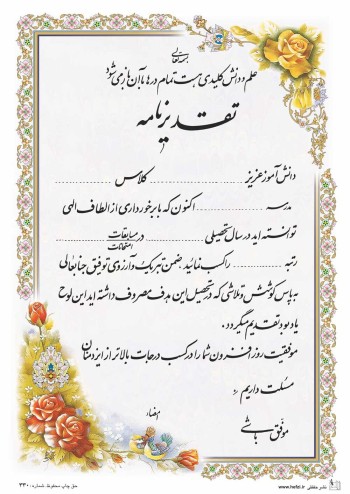 بسمه تعالی
علم و دانش کلیدی هست تمام درها با آن باز می شود
تقدیرنامه
دانش آموز عزیز .................... کلاس ....................
مدرسه .................... اکنون که با برخورداری از الطاف الهی
توانسته اید در سال تحصیلی .................... در مسابقات امتحانات ....................
رتبه .................... را کسب نمائید، ضمن تبریک و آرزوی توفیق جنابعالی
به پاس کوشش و تلاشی که در تحصیل این هدف مصروف داشته اید این لوح
یادبود تقدیم میگردد.
موفقیت روزافزون شما را در کسب درجات بالاتر از ایزد منان
مسئلت داریم
امضاء
موفق باشی
حق چاپ محفوظ شماره: ۳۳۰
www.hafzi.ir نشر حفظی